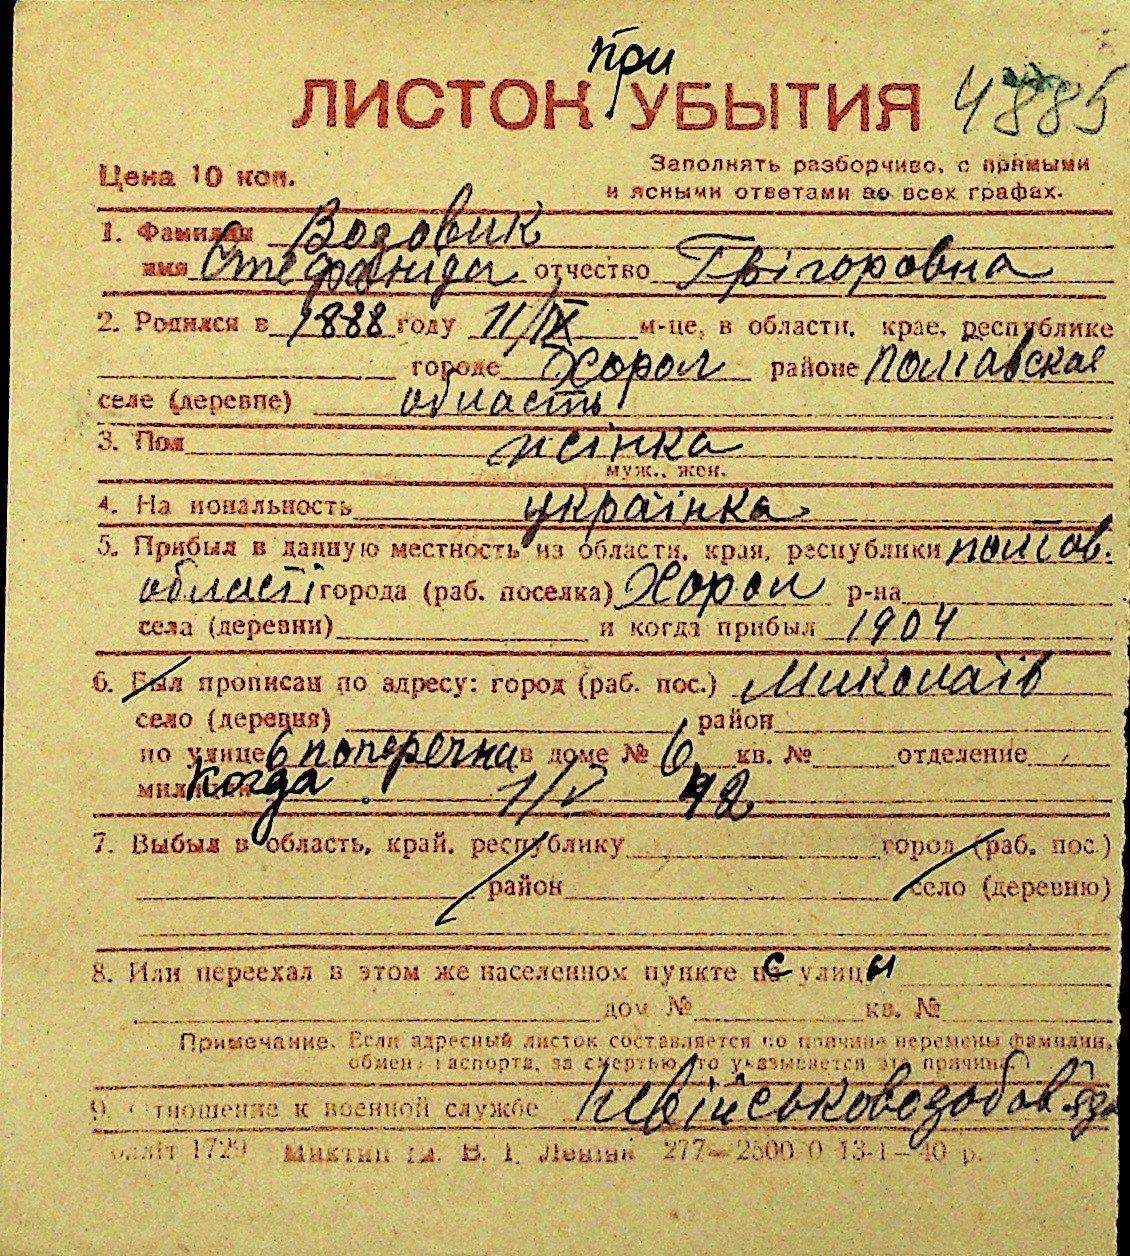 при
ЛИСТОК УБЫТИЯ 4885
Цена 10 коп.
Заполнять разборчиво, с прямыми
и ясными ответами во всех графах.
1. Фамилия Возовик
имя Стефаніда отчество Грігоровна
2. Родился в 1888 году 11/IX м-це, в области, крае, республике
городе Хорол районе Полтавская
селе (деревне) область
3. Пол жінка
муж., жен.
4. Национальность українка
5. Прибыл в данную местность из области, края, республики полтов.
області города (раб. поселка) Хорол р-на
села (деревни) и когда прибыл 1904
6. Был прописан по адресу: город (раб. пос.) Миколаїв
село (деревня) район
по улице 6 поперечна в доме № 6 кв. № отделение
милиции когда 1/V 42
7. Выбыл в область, край, республику город (раб. пос.)
район село (деревню)
8. Или переехал в этом же населенном пункте с улицы
дом № кв. №
Примечание. Если адресный листок составляется по причине перемены фамилии,
обмена паспорта, за смертью, то указывается эта причина.
9. Отношение к военной службе невійськовозобов'яза
1729 Миктип ім. В. І. Леніна 277—2500 0 13-1—40 р.